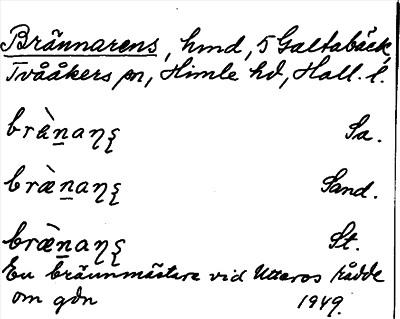 Brännarens, hmd, 5 Galtabäck,
Tvååkers sn, Himle hd, Hall. l.
bræ̀n̲aƞȿ Sa.
bræ̀n̲aƞȿ Sand.
bræ̀n̲aƞȿ St.
En brännmästare vid Utteros rådde
om gdn 1949.